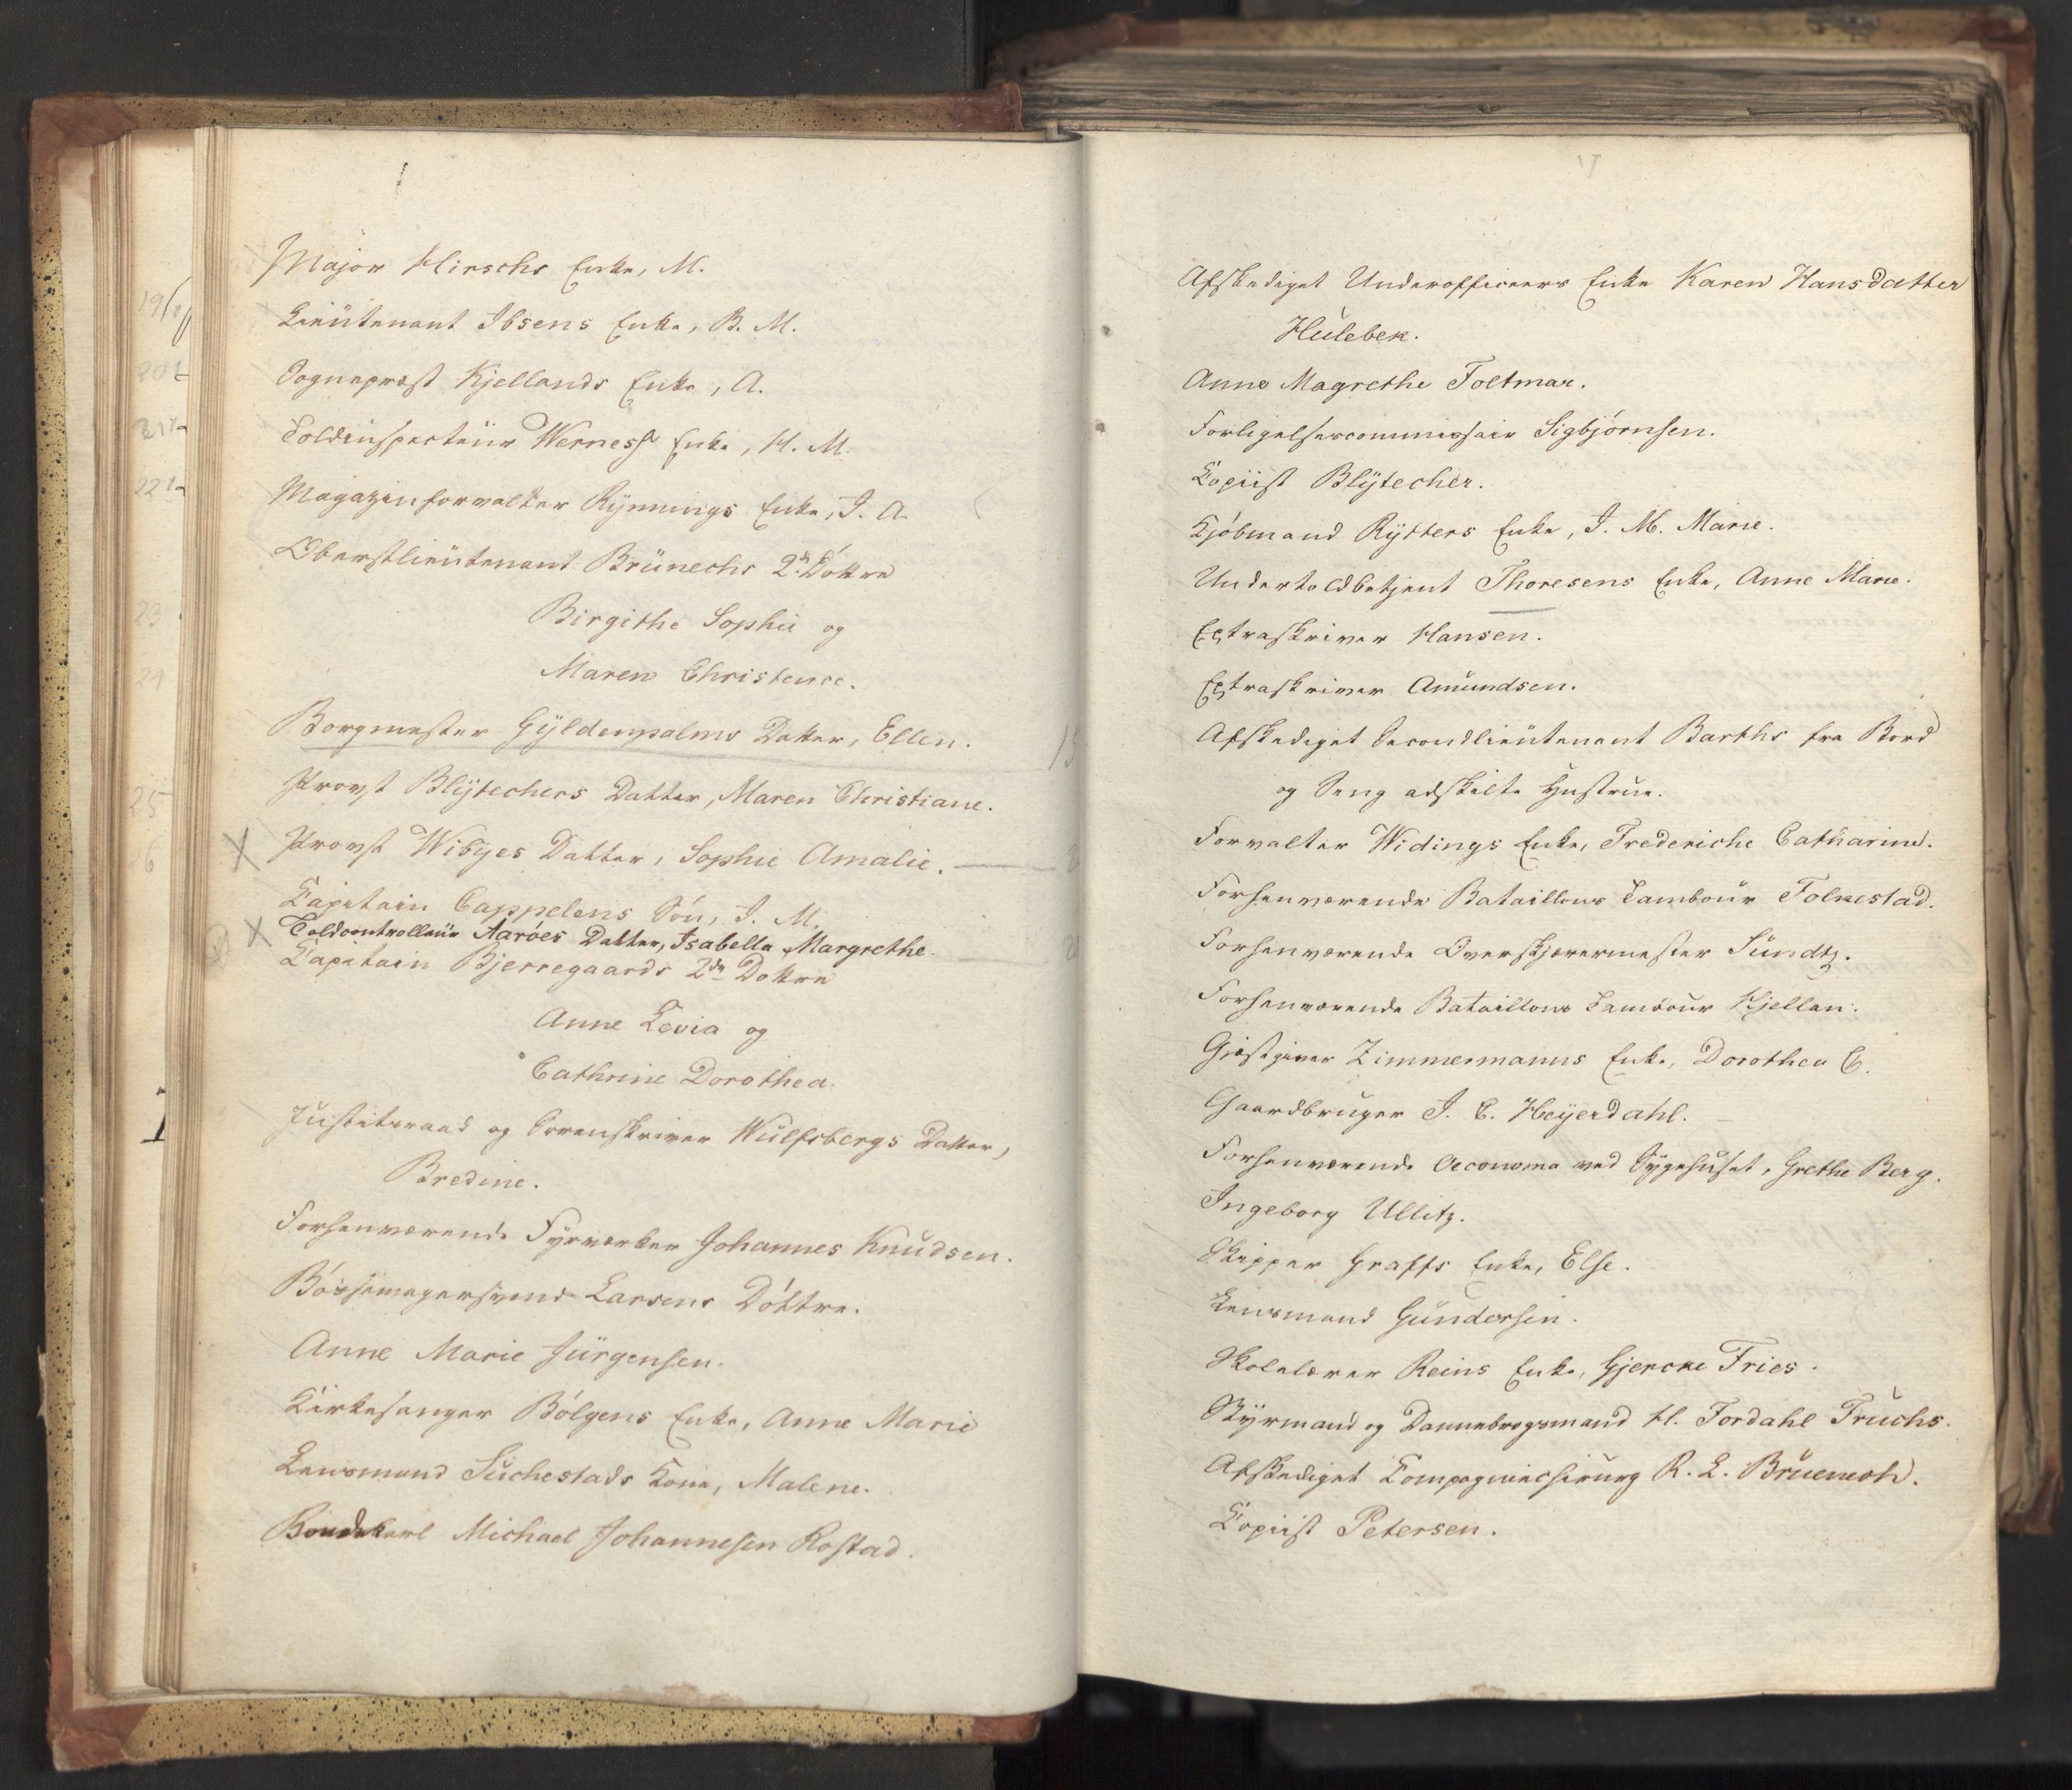 Major Hirschs Enke, M.
Lieutenant Ibsens Enke, B. M.
Sognepræst Kjellands Enke, A.
Toldinspecteur Werness Enke, H. M.
Magazinforvalter Rynnings Enke, J. A.
Oberstlieutenant Brünechs 2de Døttre
Birgithe Sophie og
Maren Christence.
Borgmester Gyldenpalms Datter, Ellen.
Provst Blytechers Datter, Maren Christiane.
Provst Wibyes Datter, Sophie Amalie.
Capitain Cappelens Søn, J. M.
Toldcontrolleur Aarøes Datter, Isabella Margrethe.
Capitain Bjerregaards 2de Døttre
Anne Levia og
Cathrine Dorothea.
Justitsraad og Sorenskriver Wulfsbergs Datter,
Bredine.
Forhenværende Fyrværker Johannes Knudsen.
Bøssemagersvend Larsens Døttre.
Anne Marie Jürgensen.
Kirkesanger Bølgens Enke, Anne Marie
Lensmand Suchestads Kone, Malene.
Bondekarl Michael Johannesen Rostad.
Afskediget Underofficeers Enke Karen Hansdatter
Hulebek.
Anne Magrethe Foltmar.
Forligelsescommissair Sigbjørnsen.
Copiist Blytecher.
Kjøbmand Rytters Enke, J. M. Marie.
Undertoldbetjent Thoresens Enke, Anne Marie.
Extraskriver Hansen.
Extraskriver Amundsen.
Afskediget Secondlieutenant Barths fra Bord
og Seng adskilte Hustrue.
Forvalter Widings Enke, Frederiche Catharine.
Forhenværende Bataillons Tambour Folkestad.
Forhenværende Overskjærermester Sundtz.
Forhenværende Bataillons Tambour Kjellan.
Gjæstgiver Zimmermanns Enke, Dorothea C.
Gaardbruger J. C. Heyerdahl.
Forhenværende Oeconoma ved Sygehuset, Grethe Berg.
Ingeborg Ullitz.
Skipper Graffs Enke, Else.
Lensmand Gundersen.
Skolelærer Reins Enke, Gjercke Fries.
Styrmand og Dannebrogsmand H. Fordahl Fruchs.
Afskediget Compagniechirurg R. L. Bruenech.
Copiist Petersen.